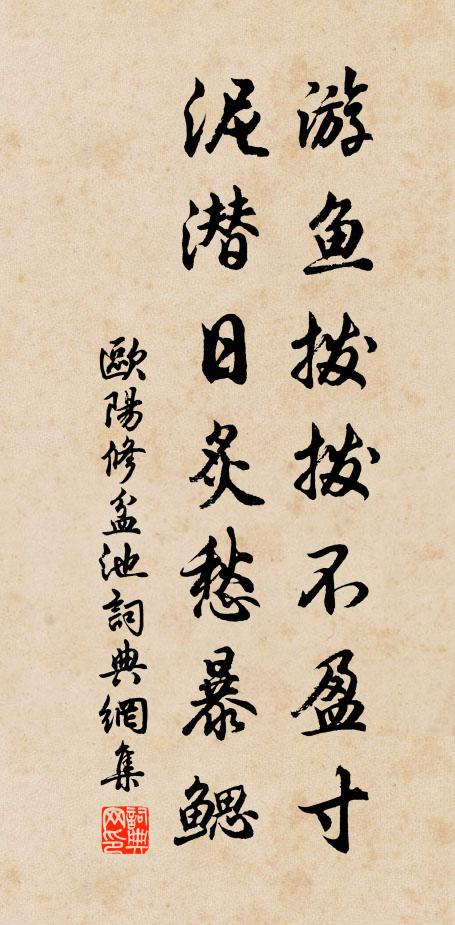 游鱼拨拨不盈寸
泥潜日炙愁暴鳃
歐陽修盆池詞典網集
詞典网印